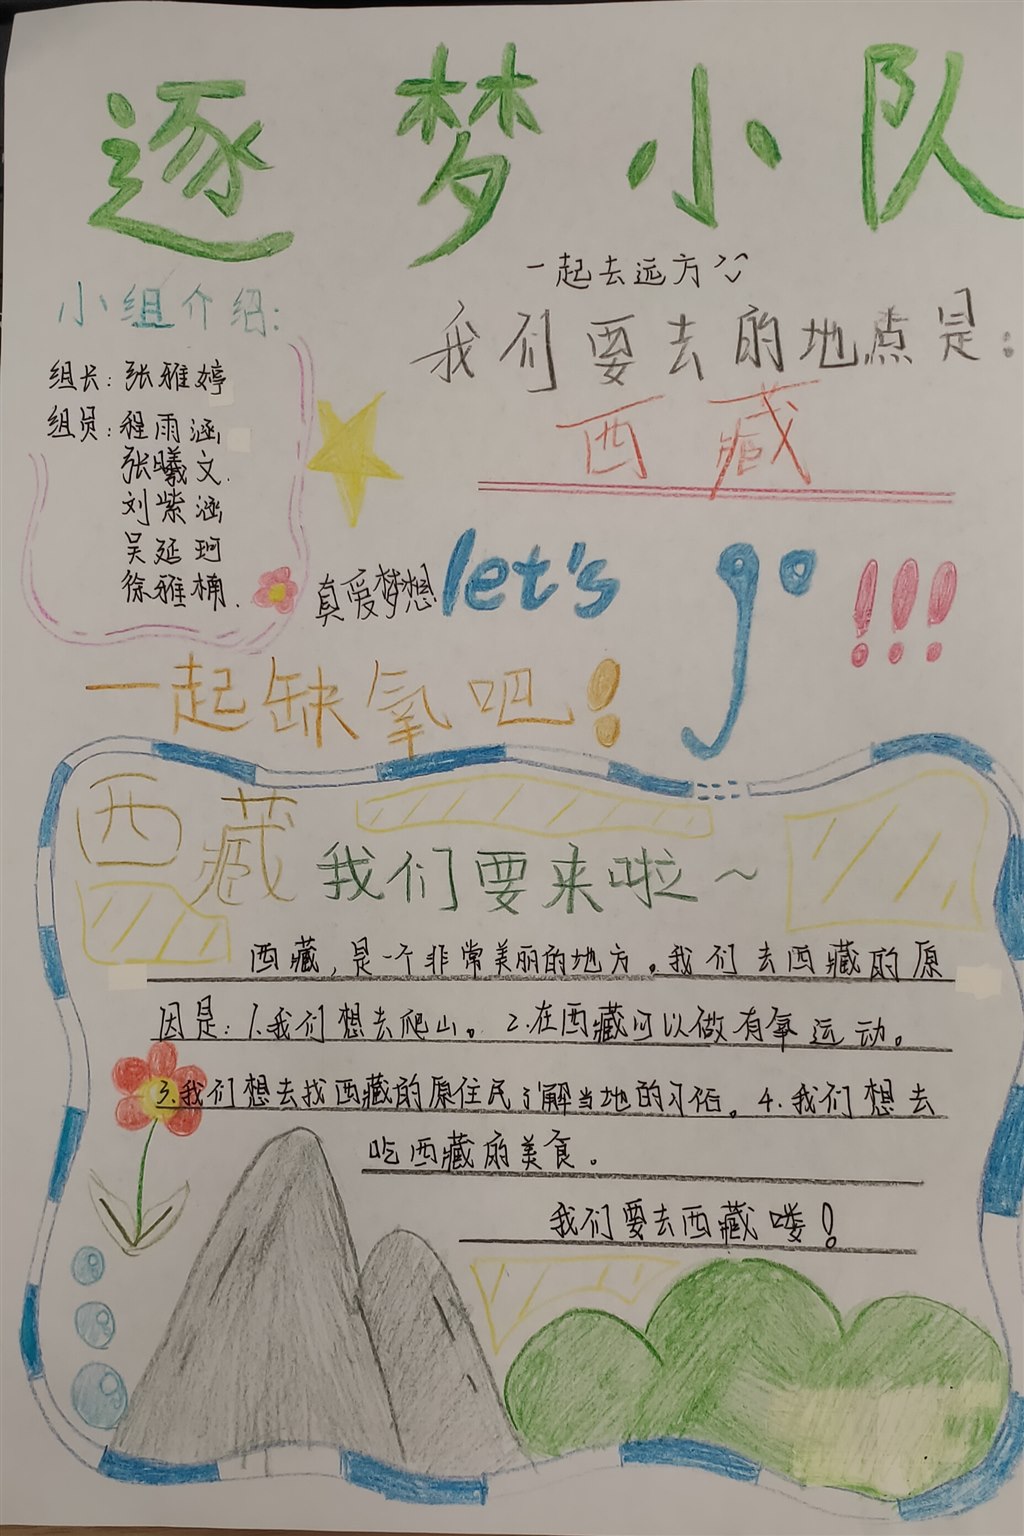 逐梦小队
一起去远方
小组介绍:
组长:张雅婷
组员:程雨涵
张曦文.
刘紫涵
吴延珂
徐雅楠.
我们要去的地点是:
西藏
真爱梦想
let's go!!!
一起缺氧吧!
西藏我们要来啦~
西藏,是一个非常美丽的地方。我们去西藏的原
因是:1.我们想去爬山。2.在西藏可以做有氧运动。
3.我们想去找西藏的原住民了解当地的习俗。4.我们想去
吃西藏的美食。
我们要去西藏喽!